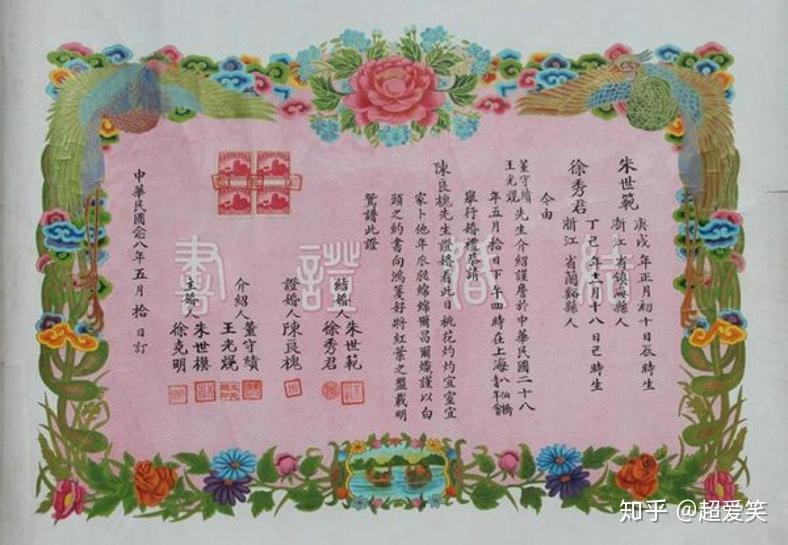 結婚證書
朱世範 庚戌年正月初十日辰時生
浙江省鎮海縣人
徐秀君 丁巳年十一月十八日巳時生
浙江省蘭谿縣人
今由
董守績
王光熀 先生介紹謹詹於中華民國二十八
年五月拾日下午四時在上海八仙橋青年會
舉行婚禮恭請
陳良槐先生證婚看此日桃花灼灼宜室宜
家卜他年瓜瓞綿綿爾昌爾熾謹以白
頭之約書向鴻箋好將紅葉之盟載明
鴛譜此證
結婚人 朱世範
徐秀君
證婚人 陳良槐
介紹人 董守績
王光熀
主婚人 朱世模
徐克明
中華民國念八年五月拾日訂
知乎 @超爱笑